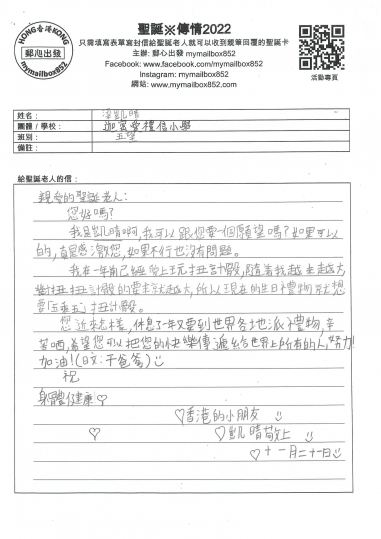 HONG KONG 香港
郵心出發
mymailbox852
聖誕※傳情2022
只需填寫表單寫封信給聖誕老人就可以收到親筆回覆的聖誕卡
主辦: 郵心出發
Facebook: www.facebook.com/mymailbox852
Instagram: mymailbox852
網站: www.mymailbox852.com
活動專頁
姓名： 梁凱晴
團體 / 學校： 迦密愛禮信小學
班別： 五望
備註：
給聖誕老人的信：
親愛的聖誕老人：
您好嗎？
我是凱晴啊，我可以跟您要一個願望嗎？如果可以
的，真是感激您，如果不行也沒有問題。
我在一年前已經愛上玩扭計骰，隨着我越來越大，
對扭扭計骰的要求就越大，所以現在的生日禮物就想
要「五乘五」扭計骰。
您近來怎樣，休息了一年又要到世界各地派禮物，辛
苦晒，希望您可以把您的快樂傳遞給世界上所有的人，努力
加油！(日文：干爸爹)
祝
身體健康♡
♡香港的小朋友
♡ ♡凱晴敬上
♡十一月二十一日